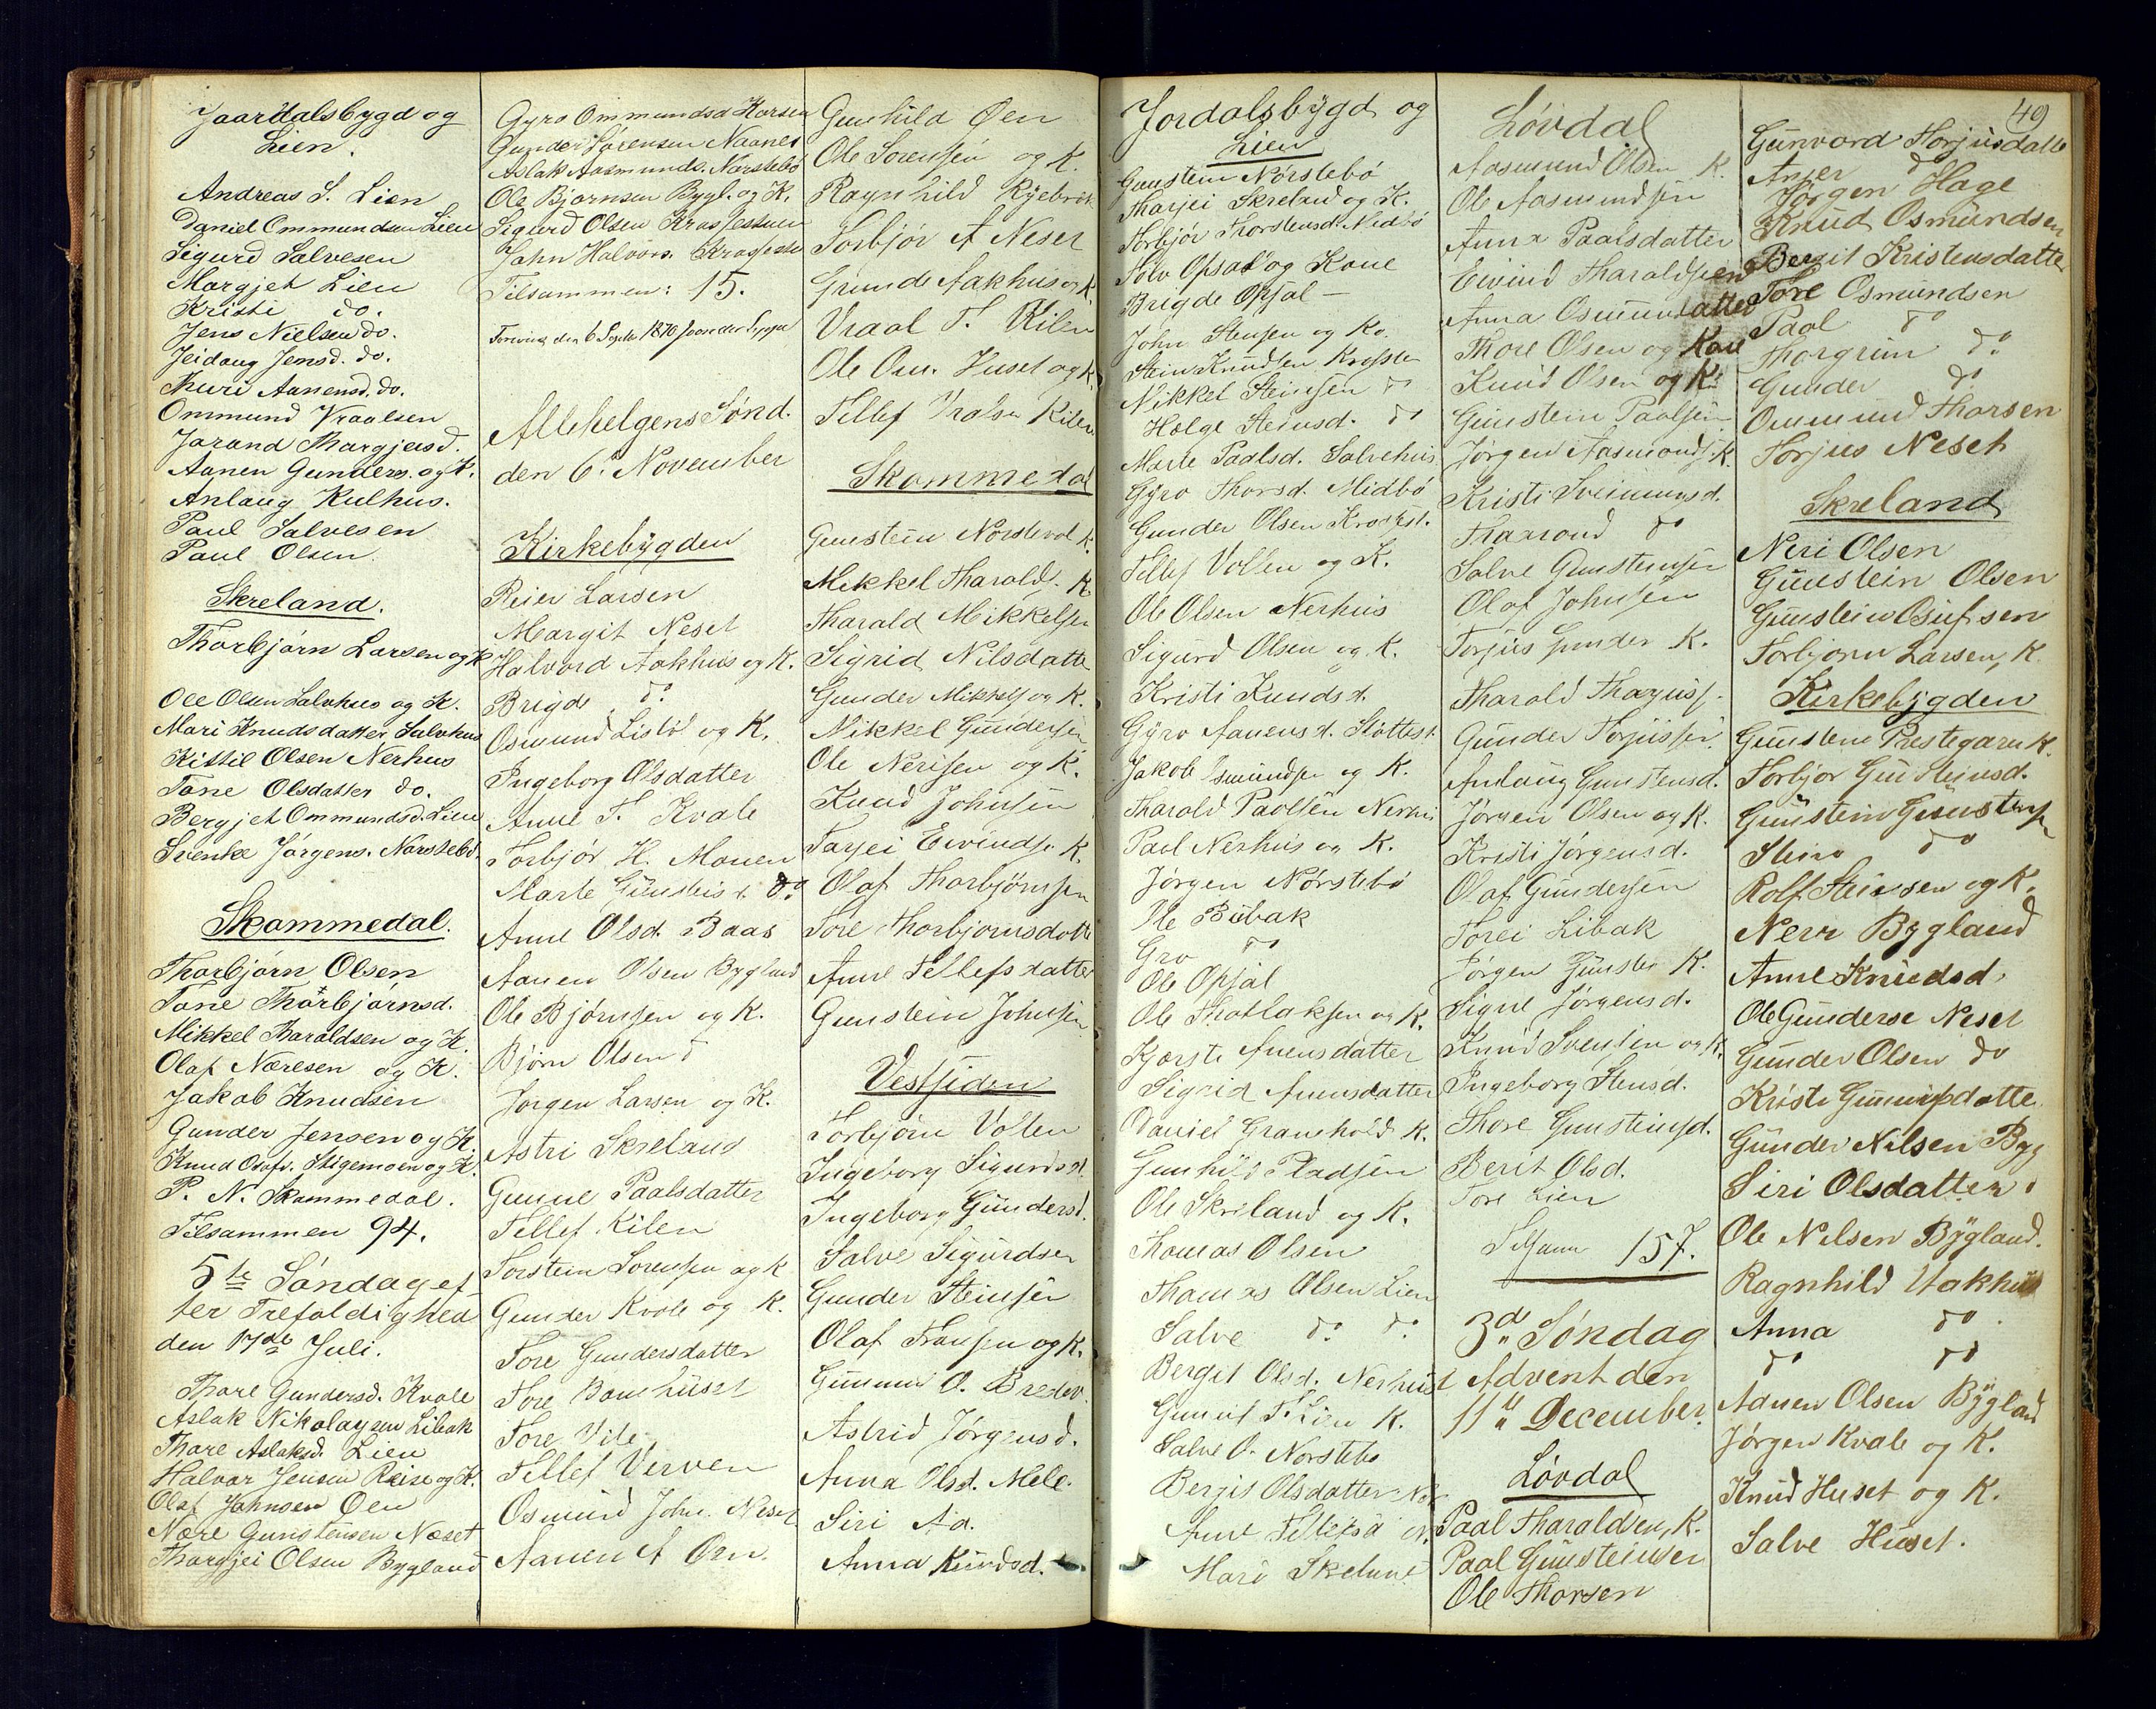 Jaardalsbygd og
Lien.
Andreas S. Lien
Daniel Ommundsen Lien
Sigurd Salvesen
Margjet Lien
Kristi do.
Jens Nielsen do.
Jeidaug Jensd. do.
Thuri Aanensd. do.
Ommund Vraalsen
Jorand Thargjensd.
Aanen Gunders. og K.
Anlaug Kulhus.
Paul Salvesen
Paul Olsen.
Skreland.
Thorbjørn Larsen og K
Ole Olsen Salvhus og K.
Mari Knudsdatter Salvhus
Kittil Olsen Nerhus
Tone Olsdatter do.
Bergjet Ommundsd. Lien
Svenke Jørgens. Norstebø.
Skammedal.
Thorbjørn Olsen
Tone Thorbjørnsd.
Mikkel Tharaldsen og K.
Olaf Næresen og K.
Jakob Knudsen
Gunder Jensen og K.
Knud Osufs. Stigemoen og K.
P. N. Skammedal.
Tilsammen 94.
5te Søndag ef
ter Trefoldighed
den 17de Juli.
Thore Gundersd. Kvale
Aslak Nikolaysen Libak
Thore Aslaksd. Lien
Halvor Jensen Reise og K.
Olaf Johnsen Øen
Nære Gunstensen Næset
Thorgjei Olsen Bygland
Gyro Ommundsd Horsen
Gunder Sørensen Naanes
Aslak Aasmunds. Nørstebø
Ole Bjørnsen Bygl. og K.
Sigurd Olsen
John Halvors.
Tilsammen: 15.
den 6 Septbr 1870
Allehelgens Sønd.
den 6. November
Kirkebygden
Reier Larsen
Margit Neset
Halvord Aakhus og K.
Brigde do
Osmund Listøl og K.
Ingeborg Olsdatter
Anne T. Kvale
Torbjør H. Monen
Marte do
Anne Olsd. Baas
Aanen Olsen Bygland
Ole Bjørnsen og K.
Bjørn Olsen
Jørgen Larsen og K.
Astri Skreland
Gunne Paalsdatter
Tellef Kilen
Torstein Sorensen og K
Gunder Kvale og K.
Tore Gundersdatter
Tore
Tore
Tellef Verven
Osmund John. Neset
Aanen A Øen.
Gunhild Øen
Ole Sorensen og K.
Ragnhild
Torbjør A Neset
Grunde Aakhus og K.
Vraal T. Kilen
Ole Om. Huset og K.
Tellef Vralsen Kilen
Skammedal
Gunstein Nørstevol K.
Mikkel Tharalds. K.
Tharald Mikkelsen
Sigrid Nilsdatte
Gunder Mikkels og K.
Mikkel Gundersen
Ole Nerisen og K.
Knud Johnsen
Tarjei Eivinds. K.
Olaf Thorbjørnsen
Tore Thorbjornsdatt
Anne Tellefsdatter
Gunstein Johnsen
Vestsiden
Torbjørn Vollen
Ingeborg Sigurdsd.
Ingeborg Gundersd.
Salve Sigurdsen
Gunder Steinsen
Olaf Fransen og K.
Gunnar O.
Astrid Jørgensd.
Anna Olsd. Mele.
Siri Aa.
Anna Knudsd.
Jordalsbygd og
Lien
Gunstein Nørstebø
Tharjei Skreland og K.
Torbjør Thorstensd. Midbø
Tolv Opsal og Kone
Brigde Opsal
John Stensen og Ko.
Stein Knudsen
Mikkel Steinsen do
Helge Steinsd. do
Marte Paalsd. Salvehus
Gyro Thorsd. Midbø
Gunder Olsen
Tellef Vollen og K.
Ole Olsen Nerhus
Sigurd Olsen og K.
Kristi Knudsd.
Gyro Aanensd.
Jakob og K.
Tharald Paalsen Nerhus
Paal Nerhus og K.
Jørgen Nørstebø
Ole Bübak
Gro do
Ole Opsal
Ole Thorlaksen og K.
Kjersti Anensdatter
Sigrid Anensdatter
Daniel K.
Gunhild
Ole Skreland og K.
Thomas Olsen
Thomas Olsen Lien
Salve do. do.
Bergit Olsd. Nerhus
Lien K.
Salve O. Norstebø
Bergit Olsdatter
Anne
Mari
Løvdal
Aasmund Olsen K.
Ole Aasmundsen
Anna Paalsdatter
Eivind Tharaldsen
Anna Osmundsdatter
Thore Olsen og Kone
Knud Olsen og K.
Gunstein Paalsen
Jørgen Aasmunds. K.
Kristi Sveinungsd.
Tharaand do
Salve Gunsteinsen
Olaf Johnsen
Torjus Gunder K.
Tharald Thorjuss.
Gunder Torjussen
Anlaug Gunstensd.
Jørgen Olsen og K.
Kristi Jørgensd.
Olaf Gundersen
Torei Libak
Jørgen K.
Signe Jørgensd.
Knud Svensen og K.
Ingeborg Stensd.
Thore Gunsteinsd.
Berit Olsd.
Tore Lien
157.
3die Søndag
i Advent den
11te December.
Løvdal
Paal Tharaldsen, K.
Paal Gunsteinsen
Ole Thorsen
49
Gunvord Torjusdatte
do
Jørgen Hage
Knud Osmundsen
Bergit Kristensdatte
Tore Osmundsen
Paal do
Thorgrim do
Gunder do
Ommund Thorsen
Torjus Neset
Skreland
Neri Olsen
Gunstein Olsen
Gunstein Osufsen
Torbjorn Larsen, K.
Kirkebygden
Gunstene Prestegaren K.
Torbjor Gunsteinsd.
Gunstein Gunstens
Stein do
Rolf Steinsen og K.
Neri Bygland
Anne Knudsd.
Ole Gunderse Neset
Gunder Olsen do
Kristi
Gunder Nilsen Byg
Siri Olsdatter
Ole Nilsen Bygland.
Ragnhild Aakhus
Anna do
do do
Aanen Olsen Bygland
Jørgen Kvale og K.
Knud Huset og K.
Salve Huset.